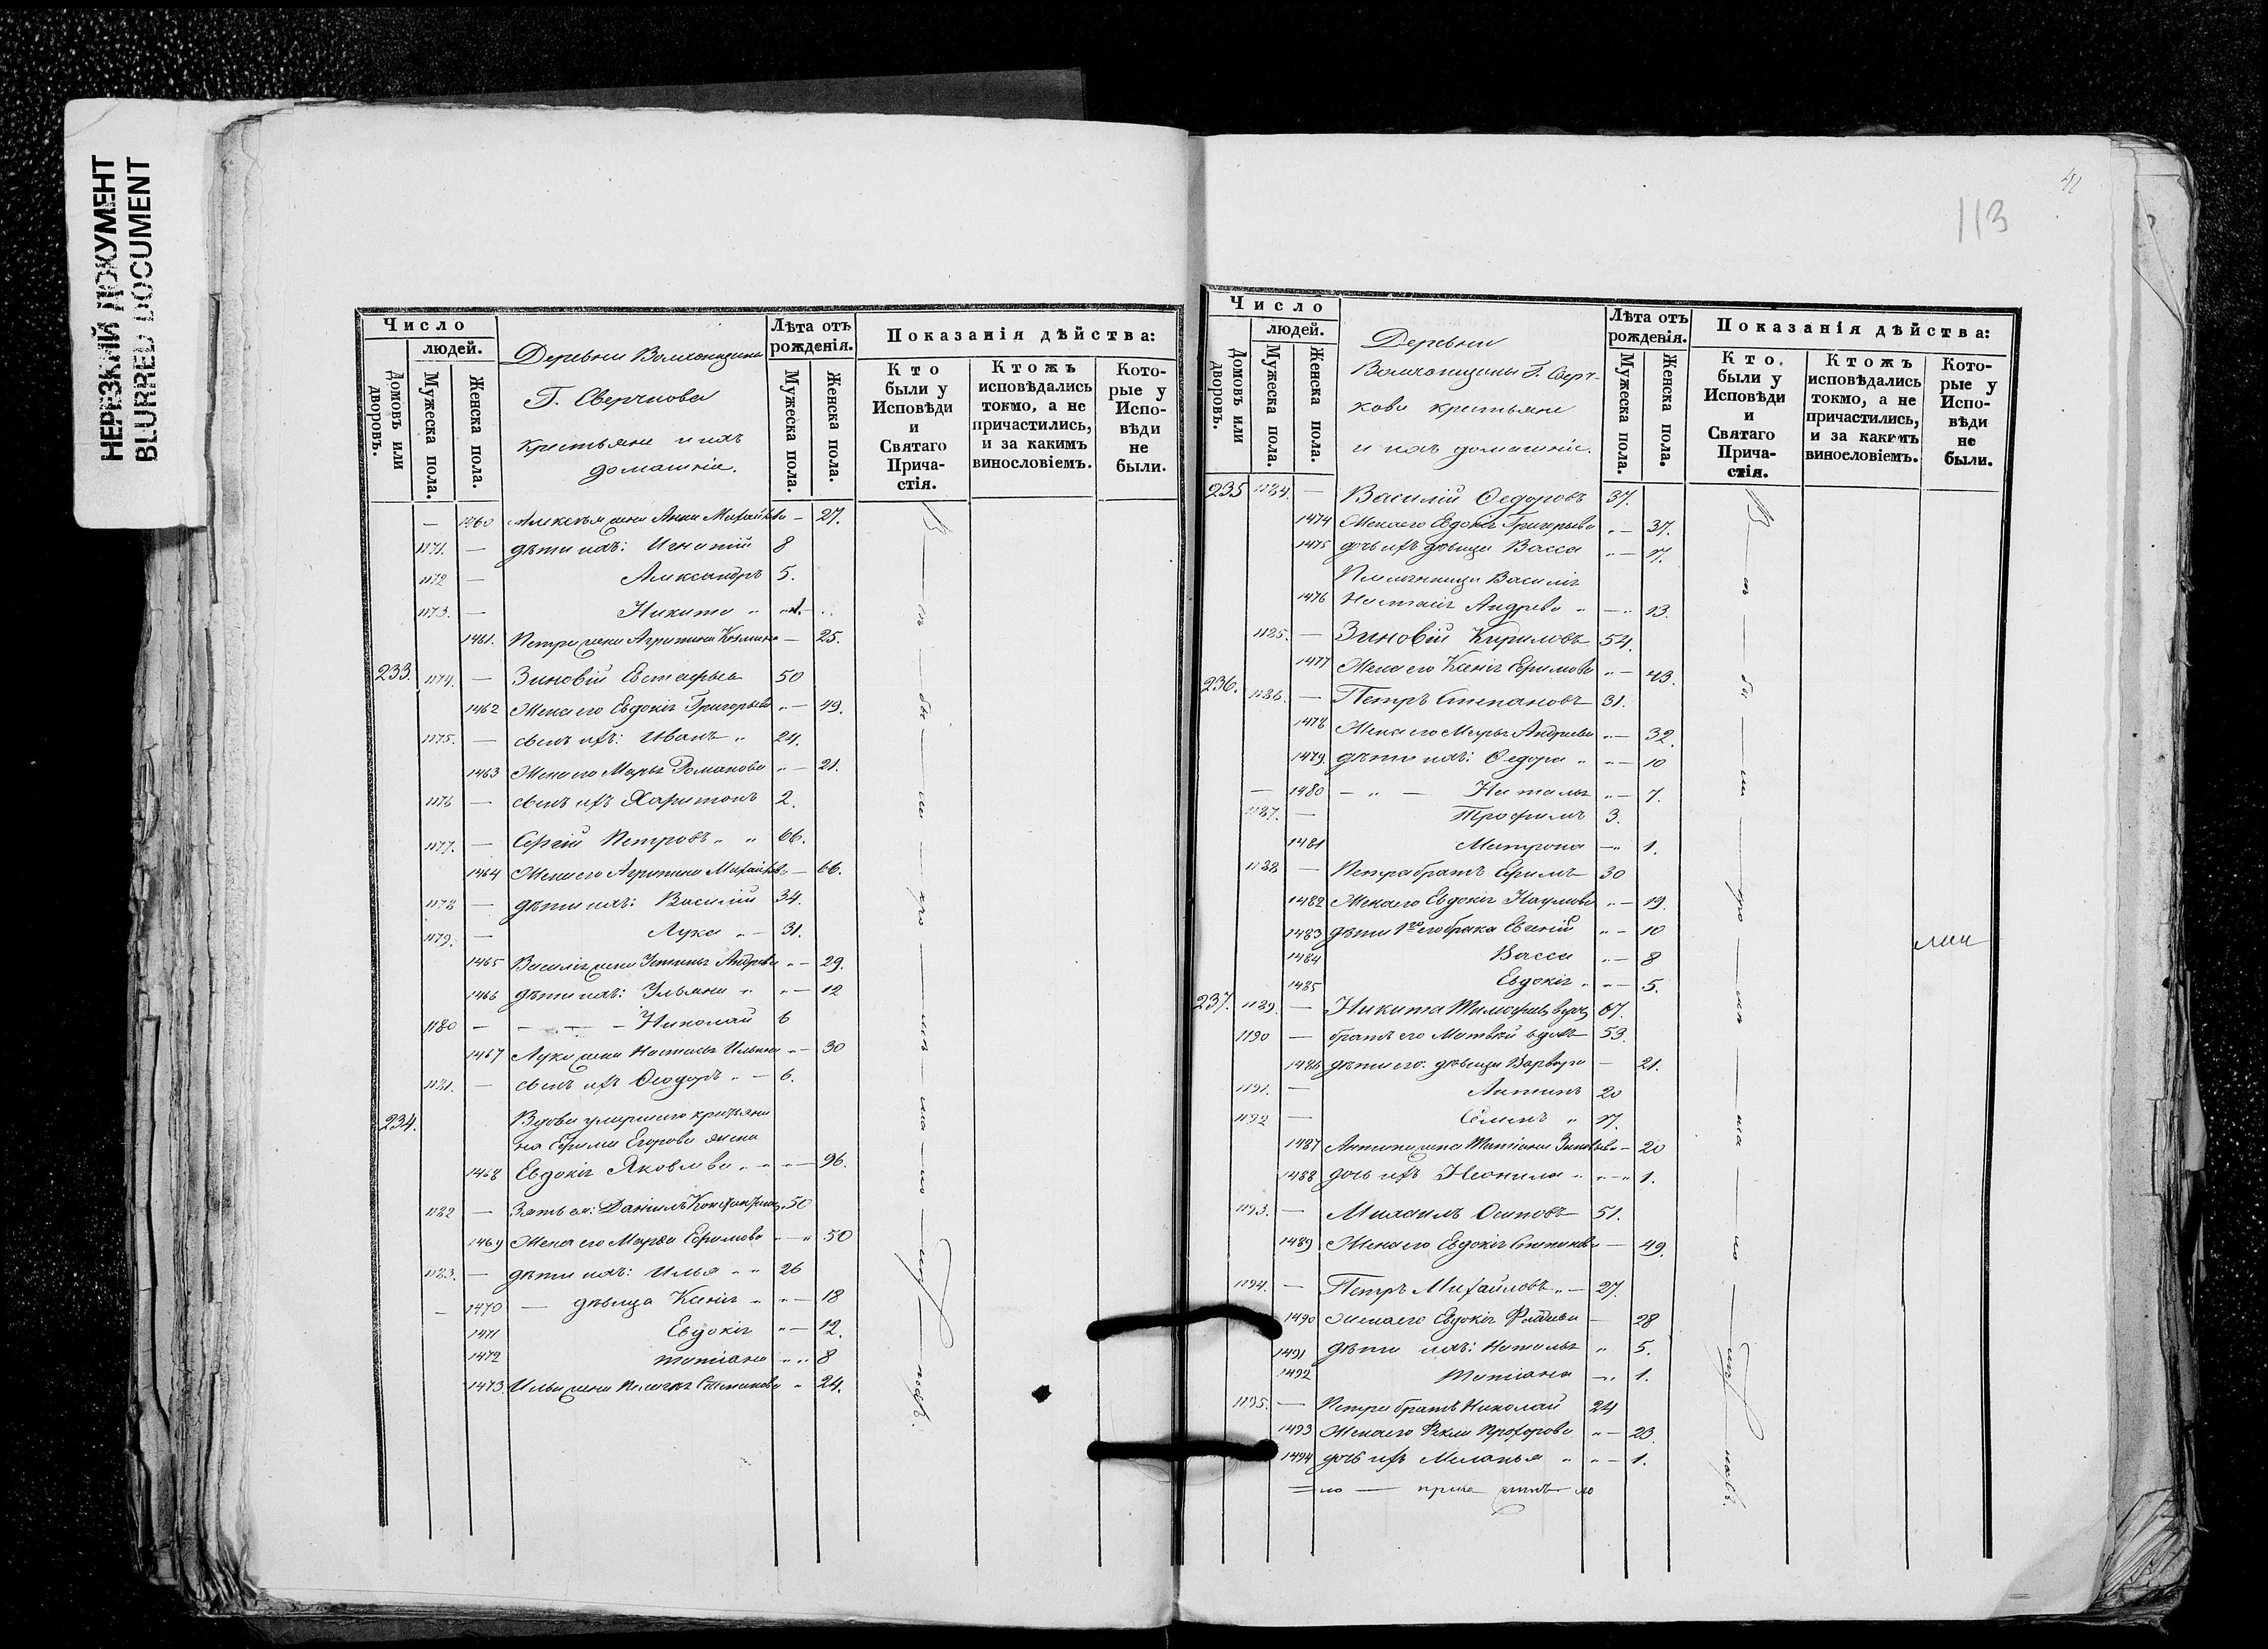 НЕРЕЗКИЙ ДОКУМЕНТ
BLURRED DOCUMENT
Число
людей.
Домовъ или дворовъ.
Мужеска пола.
Женска пола.
Деревни
Г. Сверчкова
крестьяне и ихъ
домашніе.
Лѣта отъ рожденія.
Мужеска пола.
Женска пола.
Показанія дѣйства:
Кто были у Исповѣди и Святаго Прича- стія.
Ктожъ исповѣдались токмо, а не причастились, и за какимъ винословіемъ.
Кото- рые у Испо- вѣди не были.
— 1460 жена Анна — 27.
1171. — дѣти ихъ: Игнатій 8
1172 — Александръ 5.
1173. — Никита
1461. Петра жена Агрипина Козмина — 25.
233. 1174. — Зиновій Евстафьев 50
1462 Жена его Евдокія Григорьева — 49.
1175. — сынъ ихъ: Иванъ 24.
1463 Жена его Марья Романова — 21.
1176 — сынъ ихъ Харитонъ 2.
1177. — Сергій Петровъ 66.
1464 Жена его Агрипина — 66.
1178 — дѣти ихъ: Василій 34.
1179. — Лука — 31.
1465 жена Устинья Андреева — 29.
1466 дѣти ихъ: Ульяна — 12
1180 — Николай 6
1467 Луки жена Настасья Ильина — 30
1181. — сынъ ихъ Ѳеодоръ — 6.
234. Вдова умершаго крестьяни
на Ефима Егорова жена
1468 Евдокія Яковлева — 96.
1182 — Зять ея: Даніилъ 50
1469 Жена его Марѳа Ефимова — 50
1183. — дѣти ихъ: Илья 26
1470 — дѣвица Ксенія — 18
1471 Евдокія — 12.
1472 Татіана 8
1473. Ильи жена Пелагея Степанова 24.
41
113
Число
людей.
Домовъ или дворовъ.
Мужеска пола.
Женска пола.
Деревни
Г. Сверч-
кова крестьяне
и ихъ домашніе.
Лѣта отъ рожденія.
Мужеска пола.
Женска пола.
Показанія дѣйства:
Кто были у Исповѣди и Святаго Прича- стія.
Ктожъ исповѣдались токмо, а не причастились, и за какимъ винословіемъ.
Кото- рые у Испо- вѣди не были.
235 1184. — Василій Ѳедоровъ 37.
1474 Жена его Евдокія Григорьева — 37.
1475 дочь ихъ дѣвица Васса — 17.
Племянница Василія
1476 Настасія Андреева — 13.
1185. — Зиновій Кириловъ 54.
1477 Жена его Ксенія Ефимова — 43.
236. 1186. — Петръ Степановъ 31.
1478 Жена его Марья Андреева — 32.
1479. дѣти ихъ: Ѳедора — 10
— 1480 — Наталья — 7.
1187. — Трофимъ 3.
1481 Матрона — 1.
1188 — Петра братъ Ефимъ 30
1482 Жена его Евдокія Наумова — 19.
1483 дѣти 1го его брака — 10
1484 Васса — 8
1485 Евдокія — 5.
237. 1189. — Никита 67.
1190 — братъ его Матвѣй вдовъ 53.
1486 дѣти его: дѣвица Варвара — 21.
1191. — Антипъ 20
1192 — Семенъ 17.
1487 Антипа жена Татіана Зиновьева — 20
1488 дочь ихъ Неонила 1.
1193. — Михаилъ Осиповъ 51.
1489 Жена его Евдокія Степанова — 49.
1194. — Петръ Михайловъ — 27.
1490 Жена его Евдокія — 28
1491 дѣти ихъ: Наталья 5.
1492 Татіана 1.
1195. — Петра братъ Николай 24
1493 Жена его Фекла Прохорова — 23.
1494 дочь ихъ Меланья — 1.